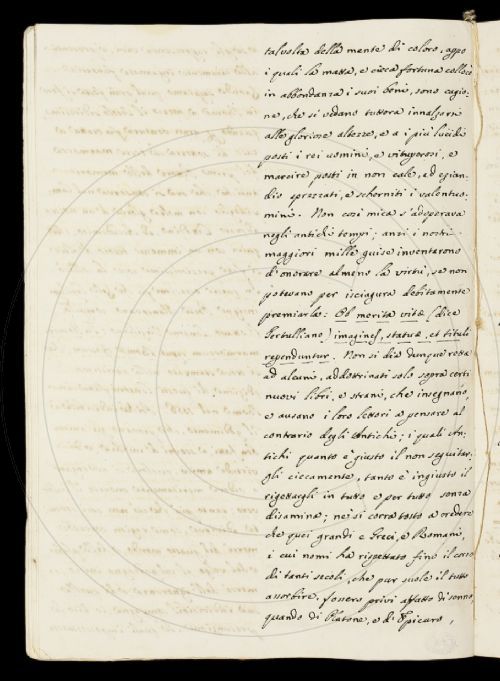 talvolta della mente di coloro, appo
i quali la matta, e cieca fortuna colloca
in abbondanza i suoi beni, sono cagio-
ne, che si vedano tuttora innalzarsi
alle gloriose altezze, e a i più lucidi
posti i rei uomini, e vituperosi, e
marcire posti in non cale, ed ezian-
dio sprezzati, e scherniti i valentuo-
mini. Non così mica s'adoperava
negli antichi tempi; anzi i nostri
maggiori mille guise inventarono
di onorare almeno la virtù, se non
potevano per isciagura debitamente
premiarla: Ob merita vitæ (dice
Tertulliano) imagines, statuæ, et tituli
rependuntur. Non si dia dunque retta
ad alcuni, addottrinati solo sopra certi
nuovi libri, e strani, che insegnano,
e ausano i loro lettori a pensare al
contrario degli Antichi; i quali An-
tichi quanto è giusto il non seguitar-
gli ciecamente, tanto è ingiusto il
rigettargli in tutto e per tutto senza
disamina; nè si corra tosto a credere
che quei grandi e Greci, e Romani,
i cui nomi ha rispettato fino il corso
di tanti secoli, che pur suole il tutto
assorbire, fossero privi affatto di senno,
quando di Platone, e di Epicuro,